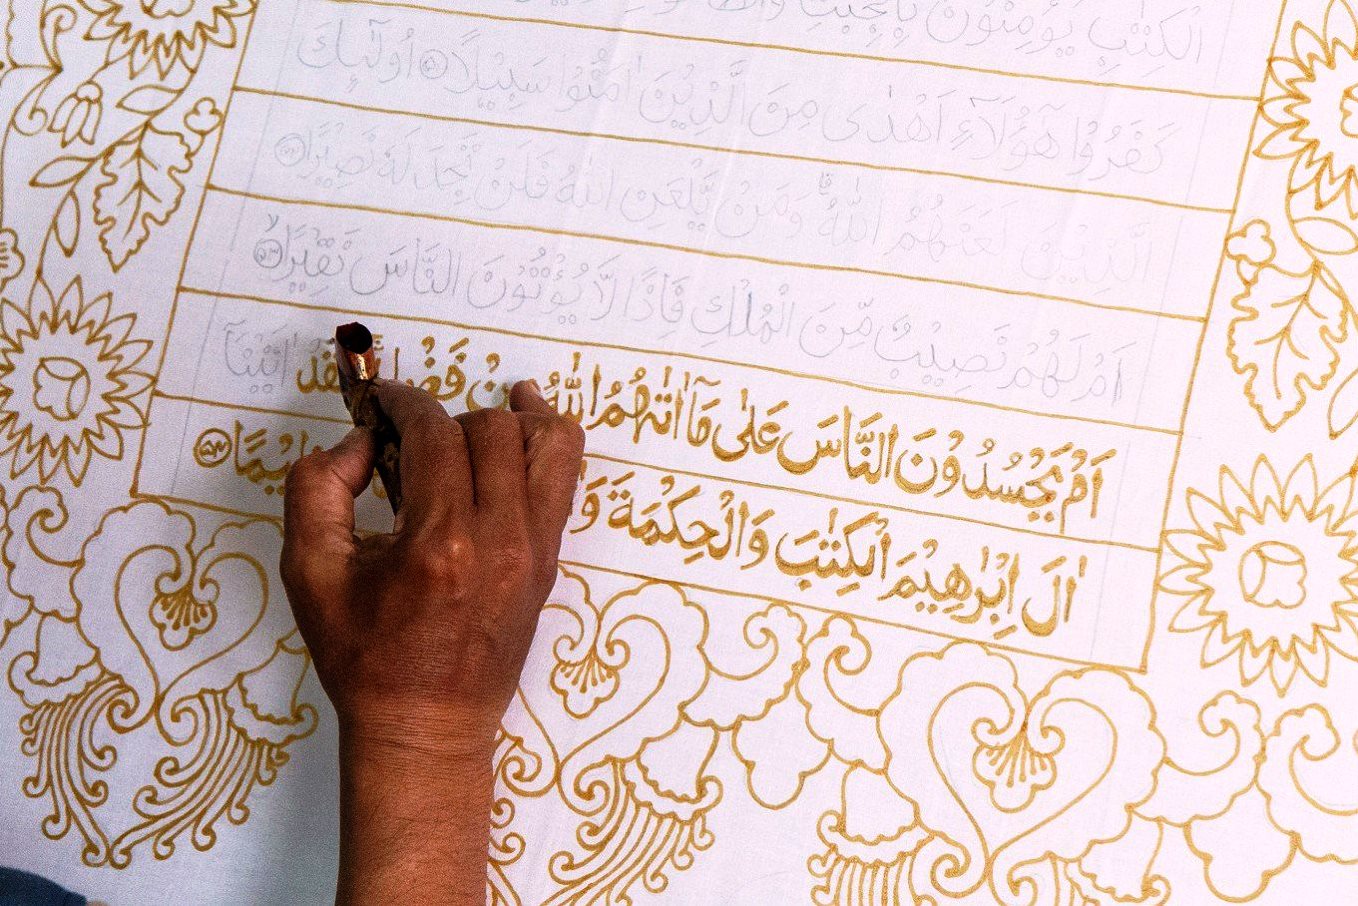 الْكِتٰبِ يُؤْمِنُوْنَ بِالْجِبْتِ
كَفَرُوْا هٰٓؤُلَاۤءِ اَهْدٰى مِنَ الَّذِيْنَ اٰمَنُوْا سَبِيْلًا ۝٥١ اُولٰۤىِٕكَ
الَّذِيْنَ لَعَنَهُمُ اللّٰهُ ۗ وَمَنْ يَّلْعَنِ اللّٰهُ فَلَنْ تَجِدَ لَهٗ نَصِيْرًا ۝٥٢
اَمْ لَهُمْ نَصِيْبٌ مِّنَ الْمُلْكِ فَاِذًا لَّا يُؤْتُوْنَ النَّاسَ نَقِيْرًا ۝٥٣ۙ
اَمْ يَحْسُدُوْنَ النَّاسَ عَلٰى مَآ اٰتٰىهُمُ اللّٰهُ اٰتَيْنَآ
اٰلَ اِبْرٰهِيْمَ الْكِتٰبَ وَالْحِكْمَةَ ۝٥٤